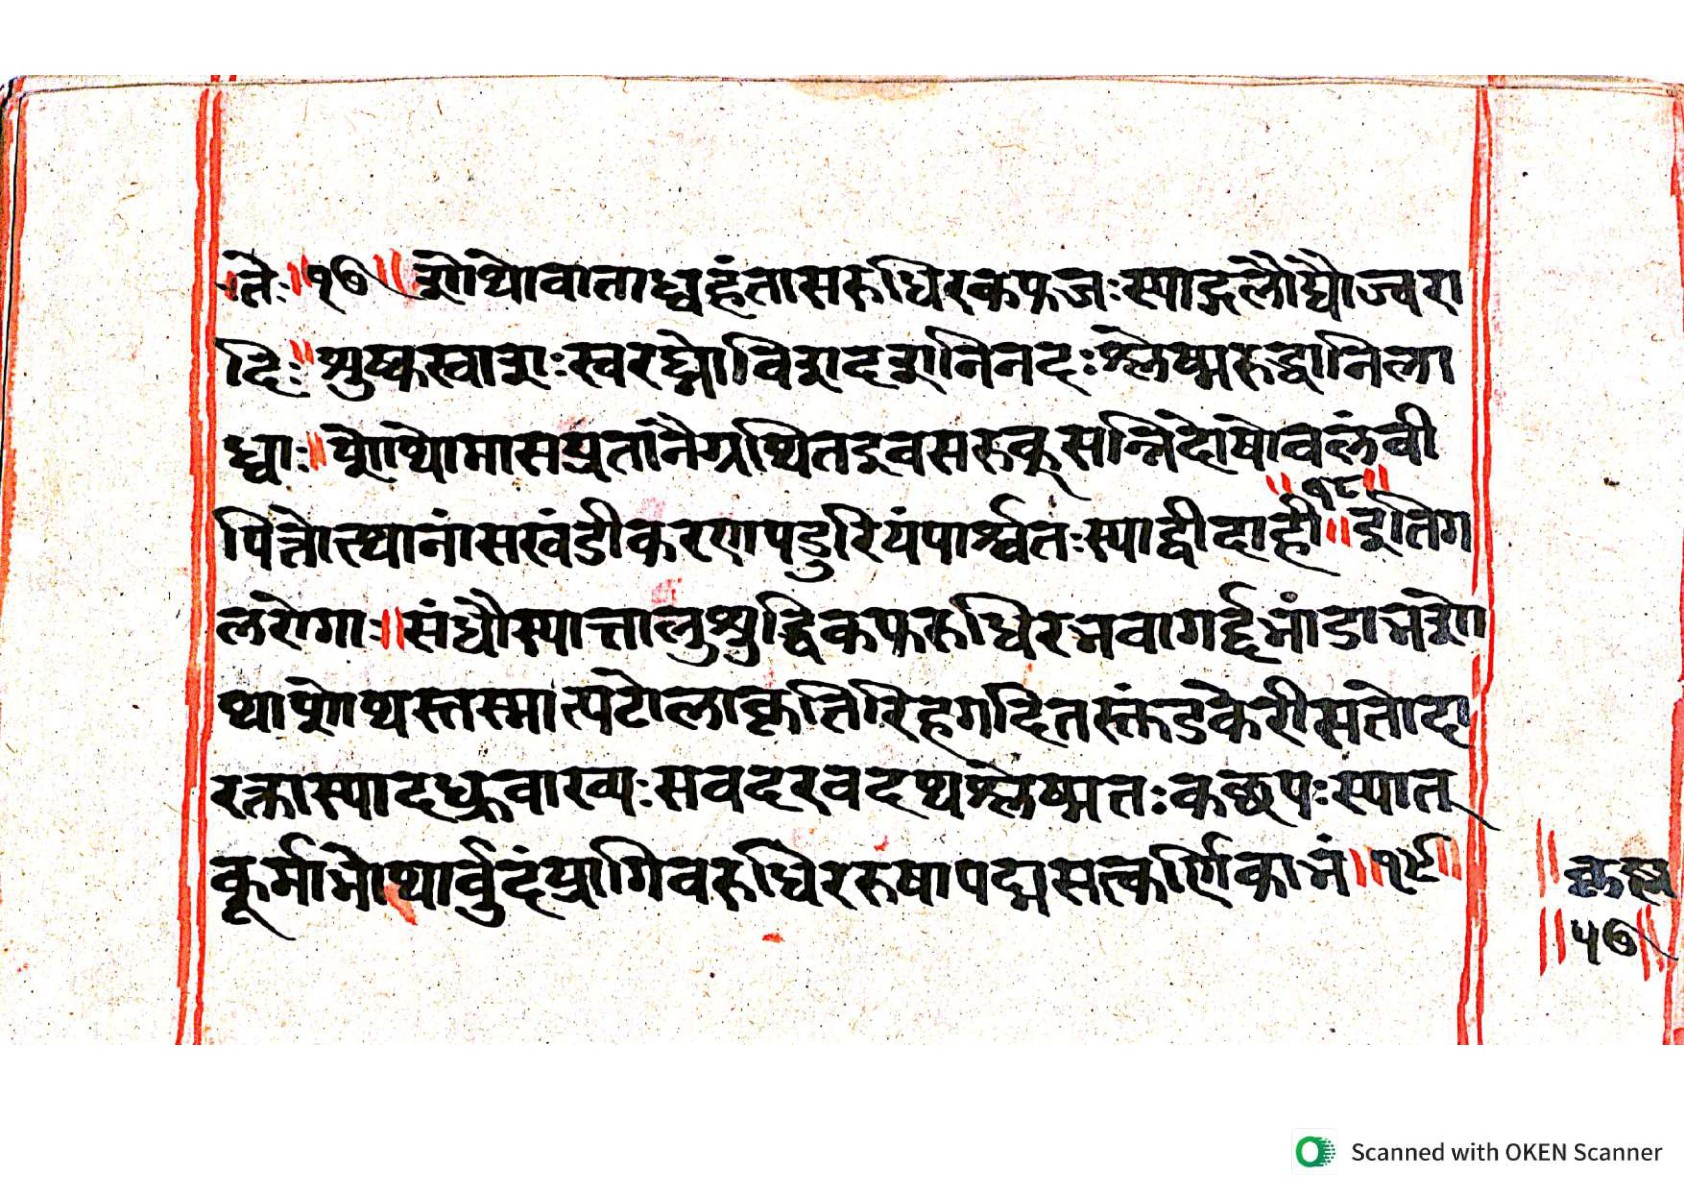 तेः ॥ १७ ॥ शोथोवाताध्वहंतासरुधिरकफजःस्याद्गलौघौज्वरा
दिः ॥ शुष्कस्वाशःस्वरघ्नोविशदशनिनदःश्लेष्मरुद्धानिला
ध्वाः ॥ शोथोमासप्रतांनैग्रथितदवसरुक्सन्निदोषोवलंवी
पित्तोत्थानांसखंडीकरणपडुरियंपार्श्वतःस्याद्वीदाहौ ॥ १८ ॥ इतिग
लरोगाः ॥ संधौस्यात्तालुशुद्धिकफरुधिरभवागर्द्दभांडाभशो
थाशोथस्तस्मात्पटोलाकृतिरिहगदितस्तंडकेरीसतोदा
रक्तास्यादध्रुवाख्यःसवदरवदथश्लेष्मतःकछपःस्यात्
कूर्माभोथार्वुदंप्रागिवरुधिररुषापद्मसत्कर्णिकाभं ॥ १९ ॥
॥ ५७ ॥
Scanned with OKEN Scanner